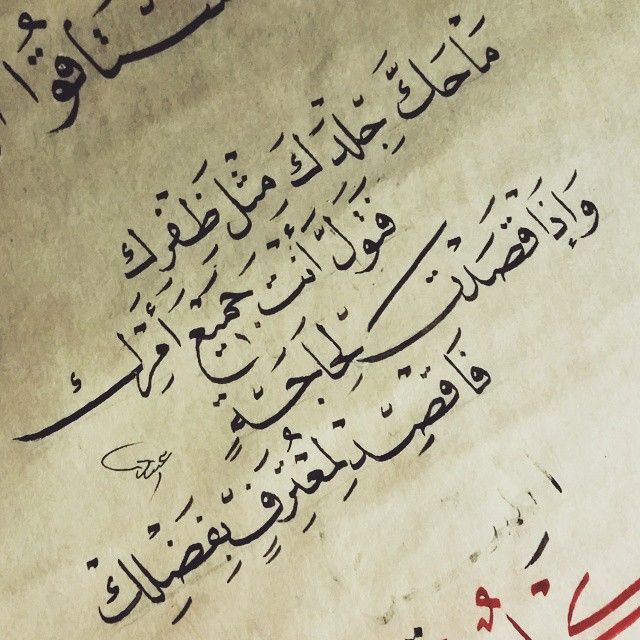 ستافوا
مَا حَكَّ جِلْدَكَ مِثْلُ ظِفْرِكَ
فَتَوَلَّ أَنْتَ جَمِيْعَ أَمْرِكَ
وَإِذَا قَصَدْتَ لِحَاجَةٍ
فَاقْصِدْ لِمُعْتَرِفٍ بِفَضْلِكَ